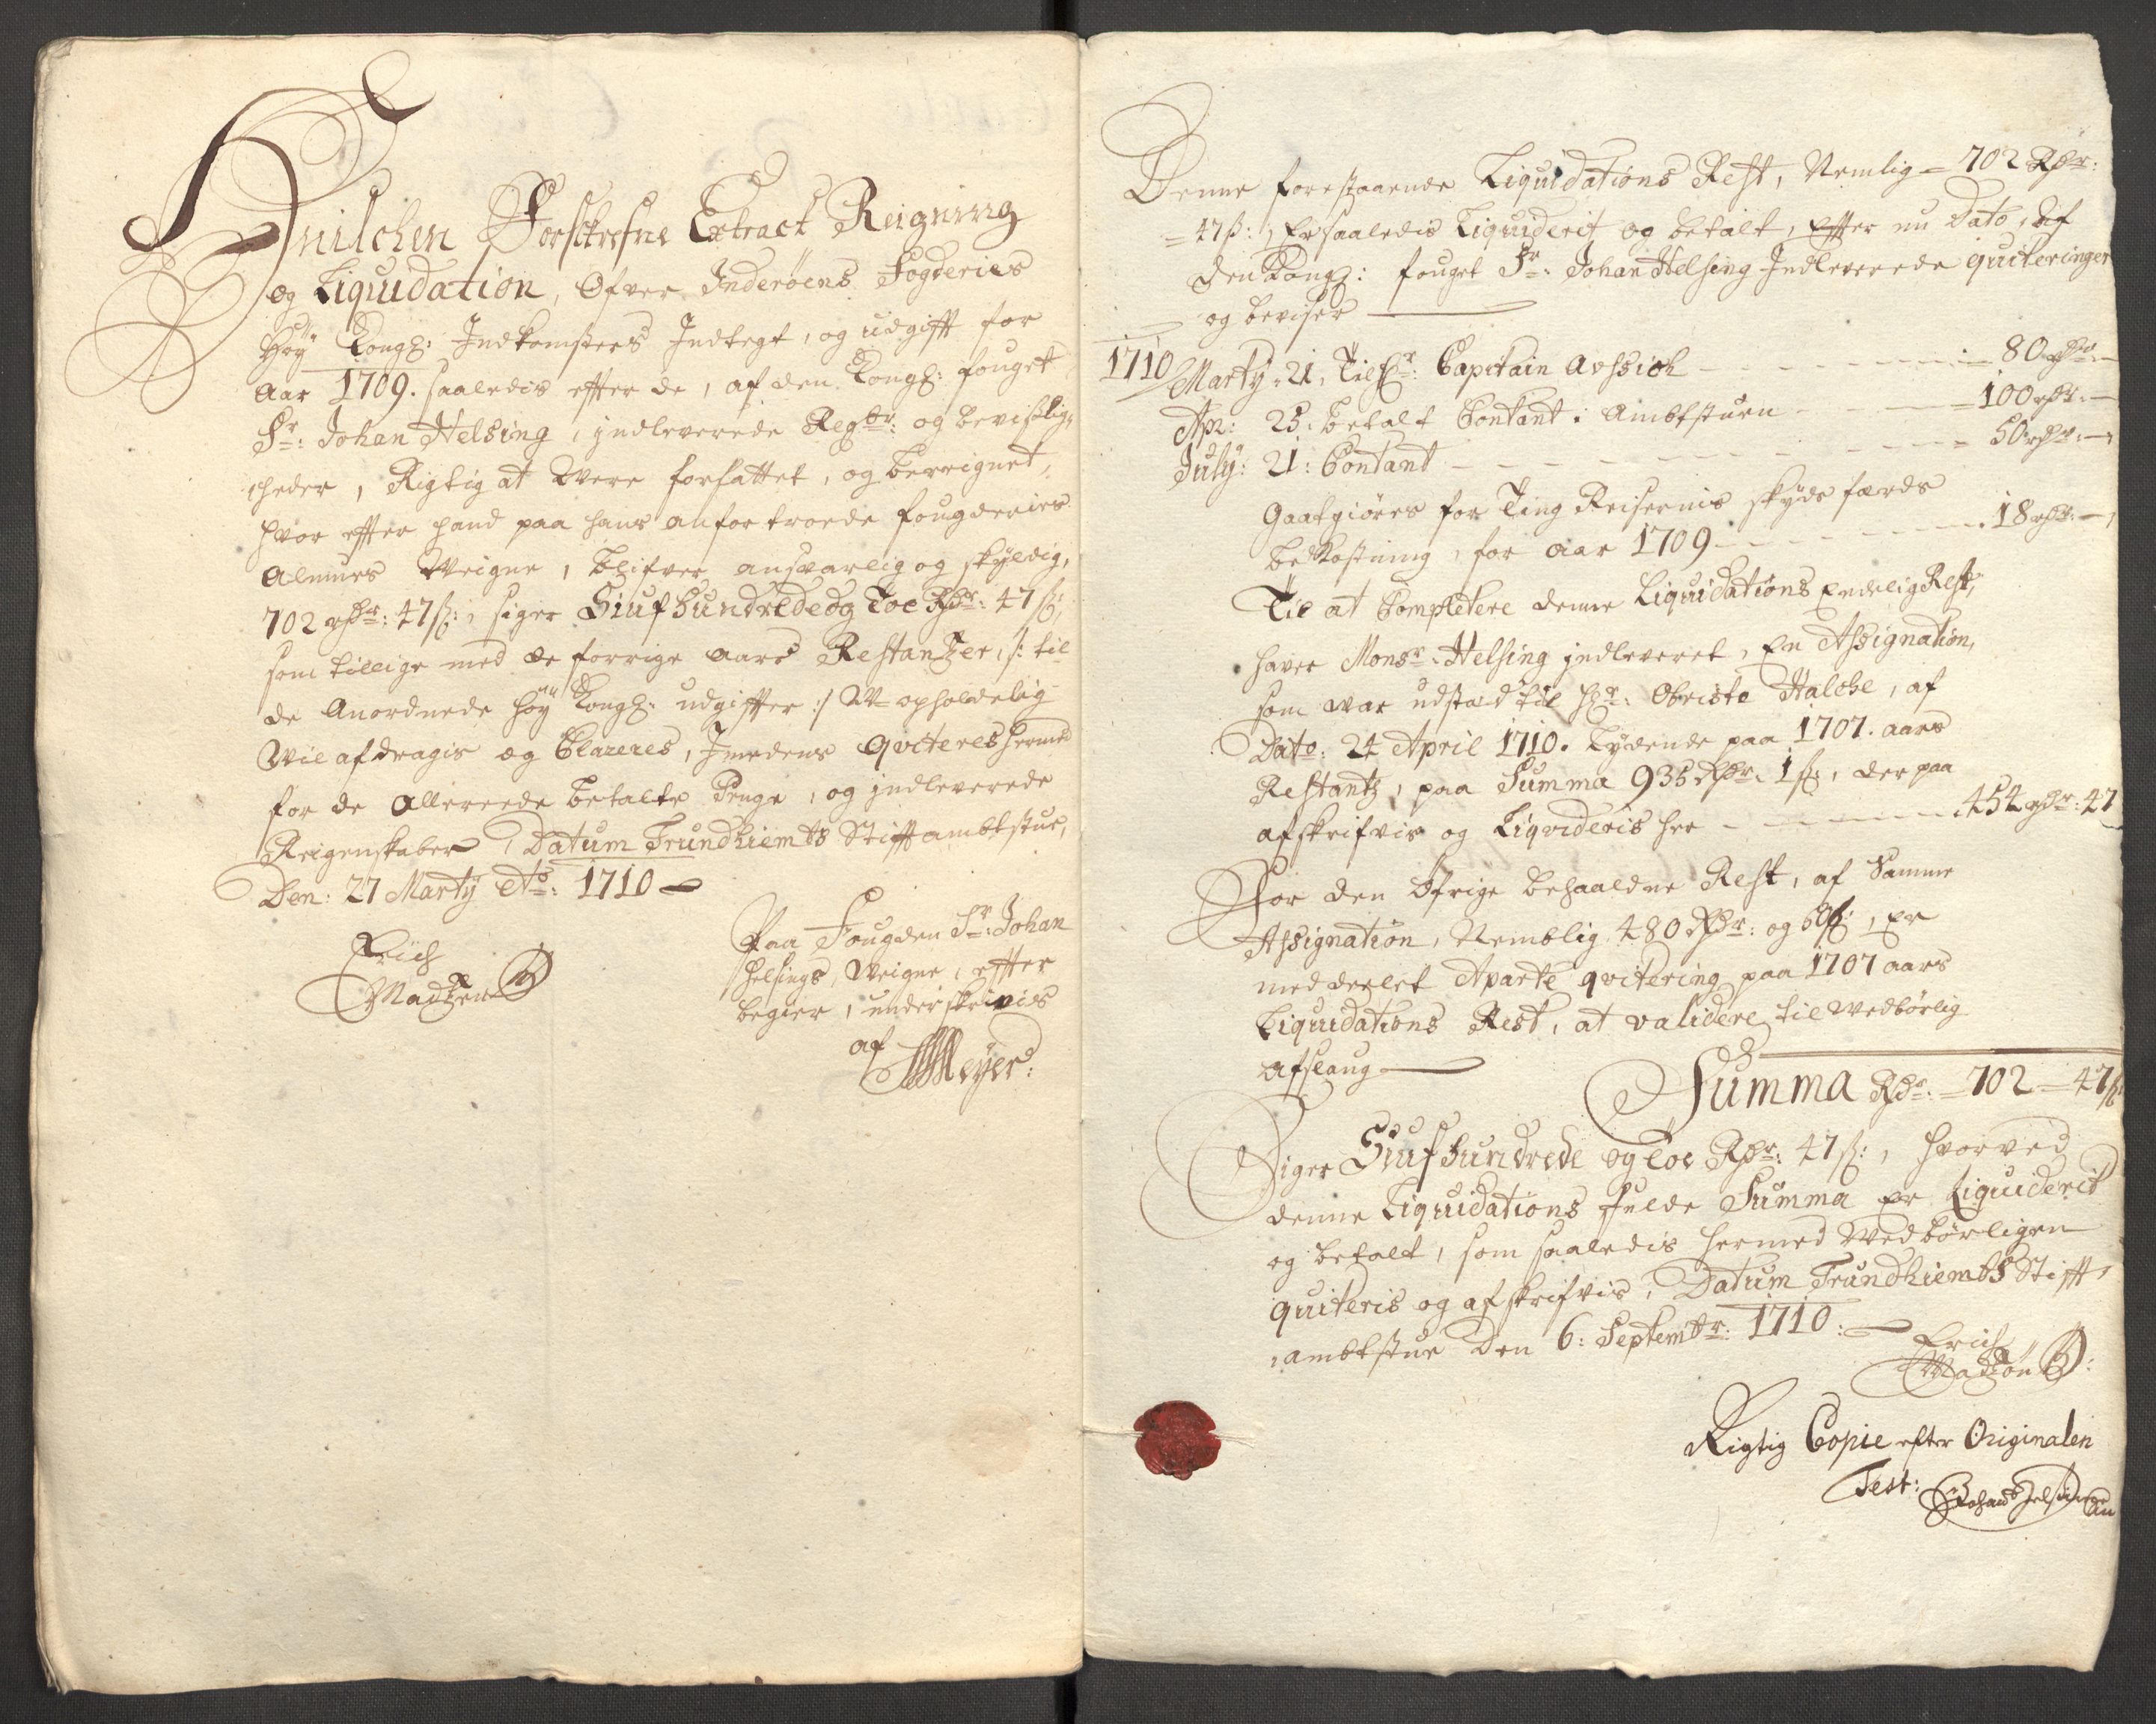 Hvilchen Forskrefne Extract Reigning
og Liquidation, Ofver Inderöens Fogderies
Höy Kongl: Indkomsters Indtegt, og udgifft for
Aar 1709. saaledis effter de, af den Kongl: fouget
Sr: Johan Helsing, jndleverede Regbr: og beviislig,
cheder, Rigtig at Were forfattet, og berreignet,
hvor effter hand paa hans anfortroede fougderies
Almues Weigne, blifver ansvarlig og skyldig,
702 rdr: 47 s:, siger Siufhundrede og Toe Rdr: 47 s:,
som tillige med de forrige Aars Restantzer, /: til
de Anordnede höy Kongl: udgiffter :/ U-opholdelig
Wil afdragis og Clareres, Jmedens qviteres hermed
for de Allereede betalte Penge, og jndleverede
Reigenskaber, Datum Trundhiembs Stifftambtstue,
Den: 27 Marty Ao: 1710
Erich
Madtzen
Paa Fougden Sr: Johan
Helsings, Weigne, effter
begier, underskrivis
af
Meyer:
Denne forestaaende Liquidations Rest, Nemlig = 702 Rdr:
= 47 s:, Er saaledis Liquiderit og betalt, Effter nu Dato, Af
den Kongl: fouget Sr: Johan Helsing Indleverede quiteringer
og beviser
1710 / Marty = 21, Til Hr: Capitain - - - 80 rdr: -
Apr: 25: betalt Contant i Ambtstuen - - - 100 rdr: -
July: 21: Contant - - - 50 rdr: -
Gaatgiöres for Ting Reisernis skydsfærds
bekostning, for Aar 1709 - - - 18 rdr: -
Til at Complétere denne Liquidations Endelig Rest,
haver Monsr: Helsing jndleveret, En Assignation,
som war udsted til Hr: Obriste Halche, af
Dato: 24 April 1710. Lydende paa 1707. aars
Restantz, paa Summa 935 Rdr: 1 s:, der paa
afskrifvis og Liqvideris her - - - 454 rdr: 47
For den öfrige behaaldne Rest, af Samme
Assignation, Nemblig 480 Rdr: og 50 s:, Er
meddeelet Aparte qvitering paa 1707 aars
Liquidations Rest, at validere til Wedbörlig
Afslaug
Summa Rdr: = 702 = 47 s:
Siger Siufhundrede og Toe Rdr: 47 s:, hvorved
denne Liquidations fulde Summa Er Liquiderit
og betalt, som saaledis hermed Wedbörligen
quiteris og afskrifvis, Datum Trundhiembs Stifft,
ambtstue Den 6: Septembr: 1710:
Erich
Madtzön
Rigtig Copie efter Originalen
Test: Johan Helsing